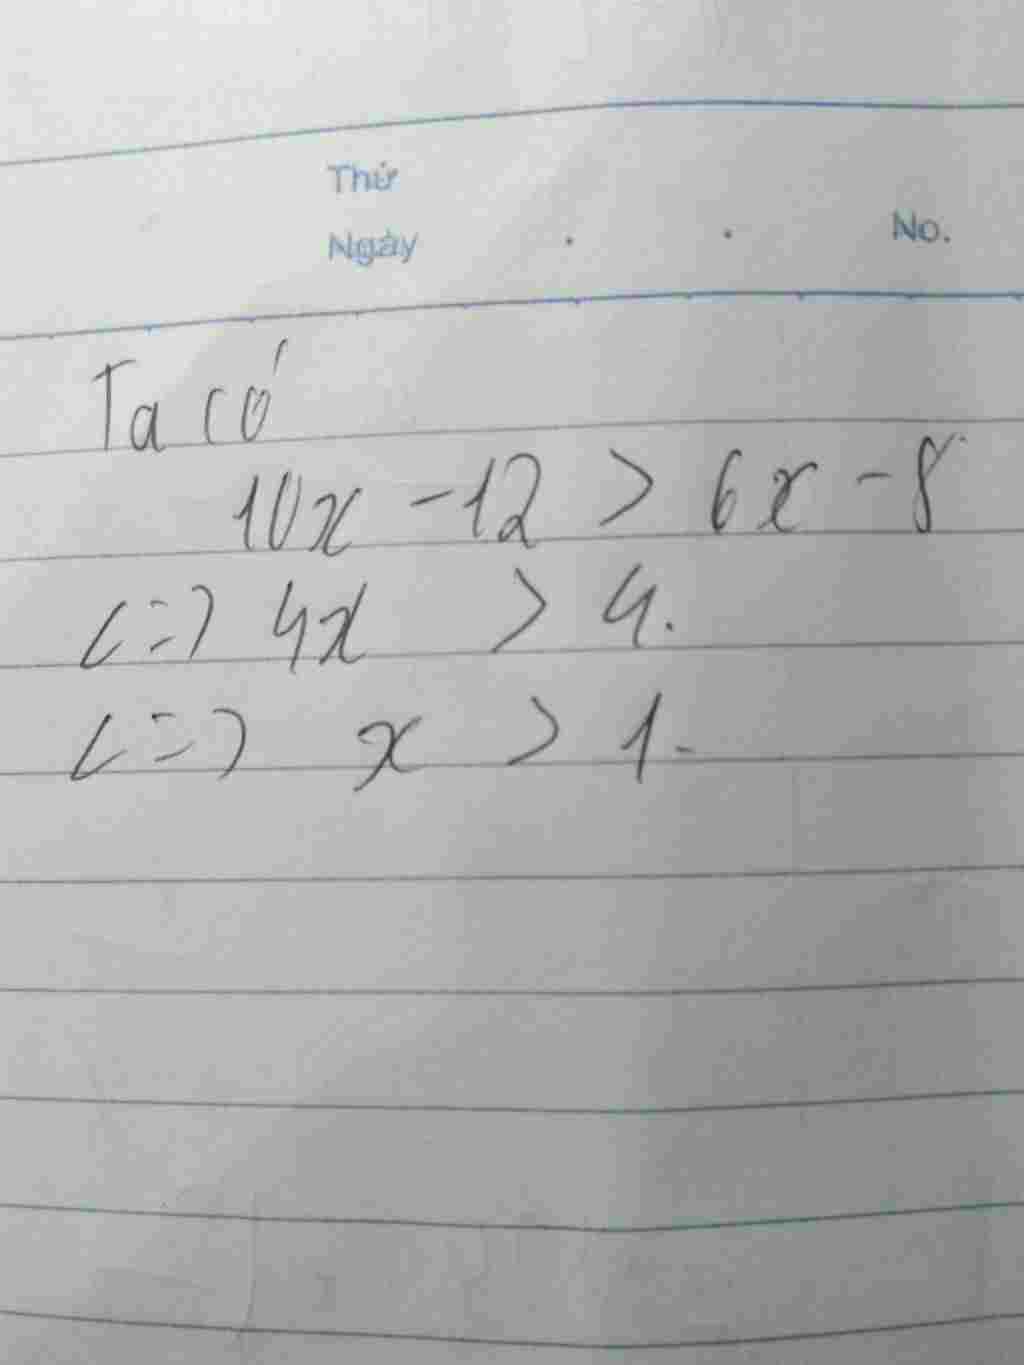 Thứ
Ngày . . No.
Ta có
10x - 12 > 6x - 8
<=> 4x > 4.
<=> x > 1.